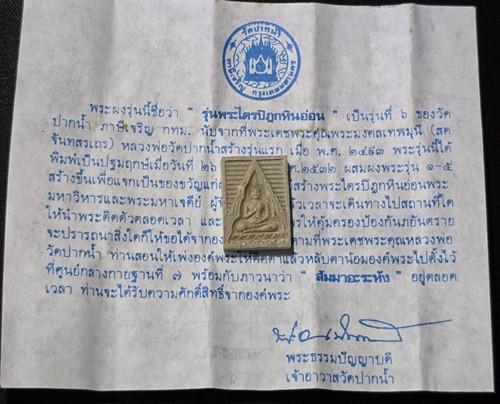 วัดปากน้ำ
ภาษีเจริญ กรุงเทพมหานคร
พระผงรุ่นนี้ชื่อว่า " รุ่นพระไตรปิฎกหินอ่อน " เป็นรุ่นที่ ๖ ของวัด
ปากน้ำ ภาษีเจริญ กทม. นับจากที่พระเดชพระคุณพระมงคลเทพมุนี (สด
จันทสรเถร) หลวงพ่อวัดปากน้ำสร้างรุ่นแรก เมื่อ พ.ศ. ๒๔๙๓ พระรุ่นนี้ได้
พิมพ์เป็นปฐมฤกษ์เมื่อวันที่ ๒๖ .ศ.๒๕๓๒ ผสมผงพระรุ่น ๑-๕
สร้างขึ้นเพื่อแจกเป็นของขวัญแก่ผ สร้างพระไตรปิฎกหินอ่อนพระ
มหาวิหารและพระมหาเจดีย์ ผู้ที่ ตัวตลอดเวลาจะเดินทางไปสถานที่ใด
ให้นำพระติดตัวตลอดเวลา ทรให้คุ้มครองป้องกันภยันตราย
จะปรารถนาสิ่งใดก็ให้ขอได้จากอง ตามที่พระเดชพระคุณหลวงพ่อ
วัดปากน้ำ ท่านสอนให้เพ่งองค์พระให้ติดตาแล้วหลับตาน้อมองค์พระไปตั้งไว้
ที่ศูนย์กลางกายฐานที่ ๗ พร้อมกับภาวนาว่า " สัมมาอะระหัง " อยู่ตลอด
เวลา ท่านจะได้รับความศักดิ์สิทธิ์จากองค์พระ
พระธรรมปัญญาบดี
เจ้าอาวาสวัดปากน้ำ